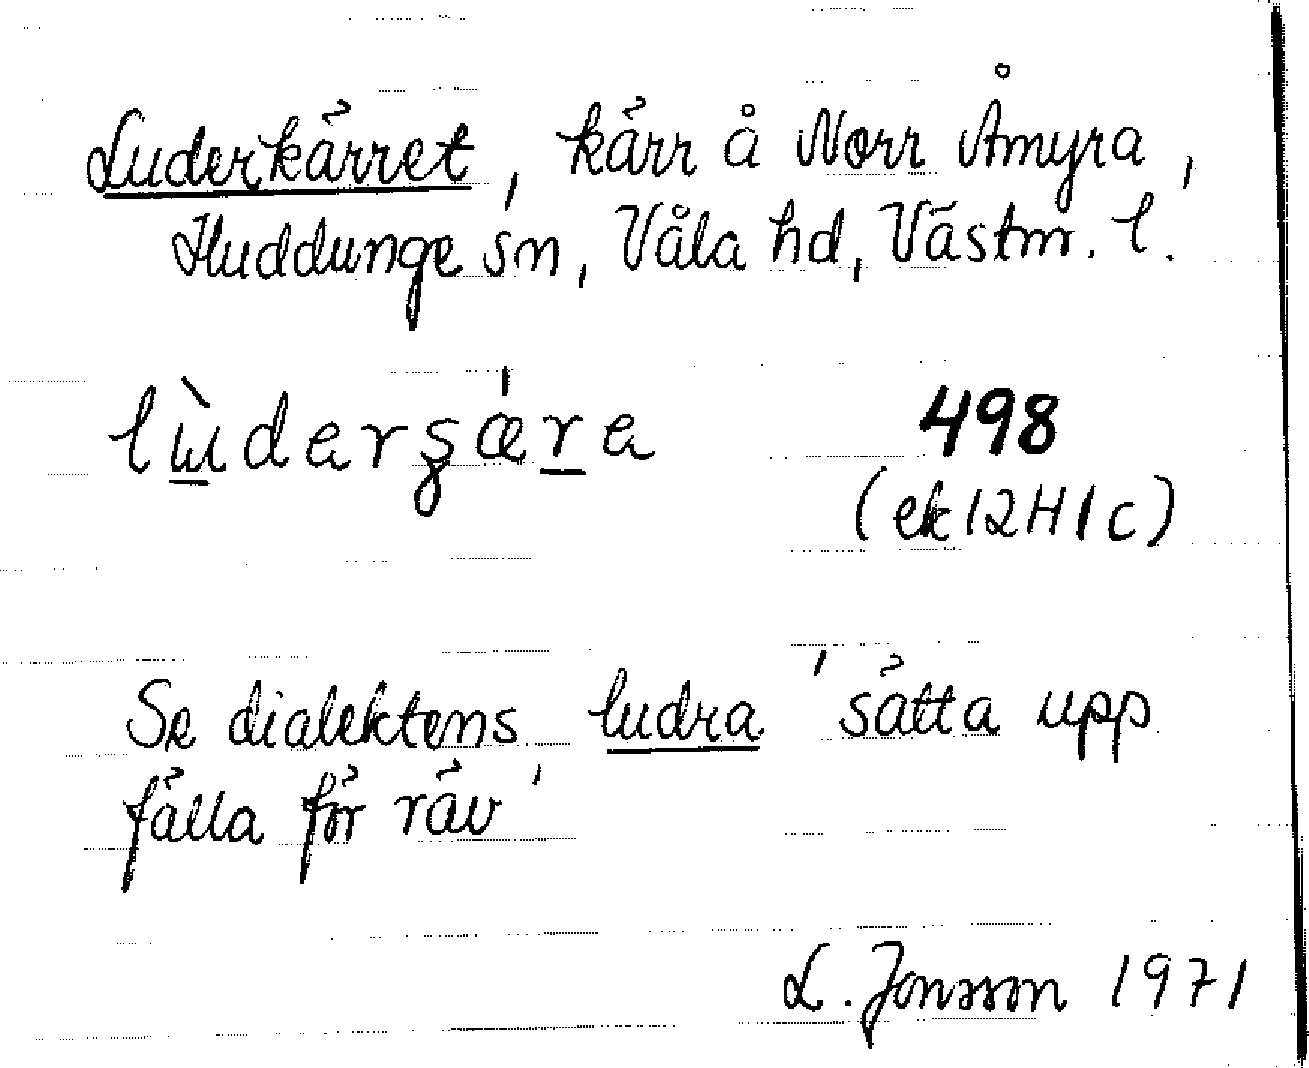 Luderkärret, kärr å Norr Åmyra,
Huddunge sn, Våla hd, Västm. l.
498
(ek 12H1c)
Se dialektens ludra 'sätta upp
fälla för räv'
L. Jonsson 1971